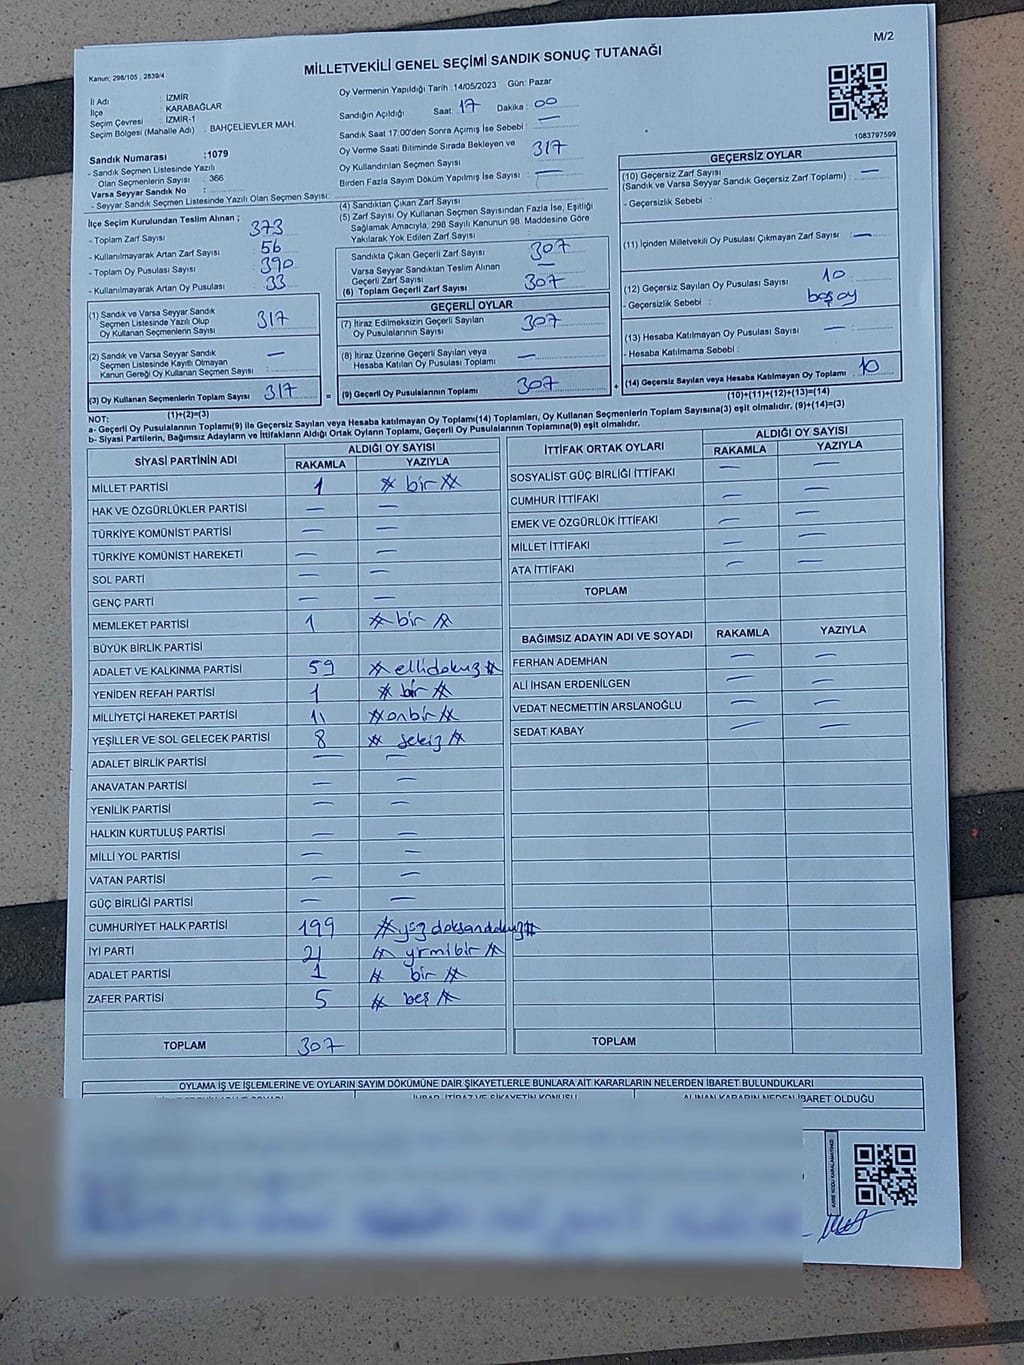 M/2
Kanun; 298/105 , 2839/4
MİLLETVEKİLİ GENEL SEÇİMİ SANDIK SONUÇ TUTANAĞI
İl Adı : İZMİR
İlçe : KARABAĞLAR
Seçim Çevresi : İZMİR-1
Seçim Bölgesi (Mahalle Adı) : BAHÇELİEVLER MAH.
Oy Vermenin Yapıldığı Tarih :14/05/2023 Gün: Pazar
Sandığın Açıldığı Saat: 17 Dakika : 00
Sandık Saat 17:00'den Sonra Açımış İse Sebebi : —
Oy Verme Saati Bitiminde Sırada Bekleyen ve
Oy Kullandırılan Seçmen Sayısı : 317
Birden Fazla Sayım Döküm Yapılmış İse Sayısı : —
1083797599
Sandık Numarası :1079
- Sandık Seçmen Listesinde Yazılı
Olan Seçmenlerin Sayısı : 366
Varsa Seyyar Sandık No :
- Seyyar Sandık Seçmen Listesinde Yazılı Olan Seçmen Sayısı:
İlçe Seçim Kurulundan Teslim Alınan ;
- Toplam Zarf Sayısı : 373
- Kullanılmayarak Artan Zarf Sayısı : 56
- Toplam Oy Pusulası Sayısı : 390
- Kullanılmayarak Artan Oy Pusulası : 33
(1) Sandık ve Varsa Seyyar Sandık
Seçmen Listesinde Yazılı Olup
Oy Kullanan Seçmenlerin Sayısı : 317
(2) Sandık ve Varsa Seyyar Sandık
Seçmen Listesinde Kayıtlı Olmayan
Kanun Gereği Oy Kullanan Seçmen Sayısı : —
(3) Oy Kullanan Seçmenlerin Toplam Sayısı : 317
(1)+(2)=(3)
(4) Sandıktan Çıkan Zarf Sayısı :
(5) Zarf Sayısı Oy Kullanan Seçmen Sayısından Fazla İse, Eşitliği
Sağlamak Amacıyla; 298 Sayılı Kanunun 98. Maddesine Göre
Yakılarak Yok Edilen Zarf Sayısı :
Sandıkta Çıkan Geçerli Zarf Sayısı : 307
Varsa Seyyar Sandıktan Teslim Alınan
Geçerli Zarf Sayısı : —
(6) Toplam Geçerli Zarf Sayısı : 307
GEÇERLİ OYLAR
(7) İtiraz Edilmeksizin Geçerli Sayılan
Oy Pusulalarının Sayısı : 307
(8) İtiraz Üzerine Geçerli Sayılan veya
Hesaba Katılan Oy Pusulası Toplamı : —
= (9) Geçerli Oy Pusulalarının Toplamı : 307
GEÇERSİZ OYLAR
(10) Geçersiz Zarf Sayısı
(Sandık ve Varsa Seyyar Sandık Geçersiz Zarf Toplamı) : —
- Geçersizlik Sebebi :
(11) İçinden Milletvekili Oy Pusulası Çıkmayan Zarf Sayısı : —
(12) Geçersiz Sayılan Oy Pusulası Sayısı : 10
- Geçersizlik Sebebi : boş oy
(13) Hesaba Katılmayan Oy Pusulası Sayısı : —
- Hesaba Katılmama Sebebi :
+ (14) Geçersiz Sayılan veya Hesaba Katılmayan Oy Toplamı : 10
(10)+(11)+(12)+(13)=(14)
NOT:
a- Geçerli Oy Pusulalarının Toplamı(9) ile Geçersiz Sayılan veya Hesaba Katılmayan Oy Toplamı(14) Toplamları, Oy Kullanan Seçmenlerin Toplam Sayısına(3) eşit olmalıdır. (9)+(14)=(3)
b- Siyasi Partilerin, Bağımsız Adayların ve İttifakların Aldığı Ortak Oyların Toplamı, Geçerli Oy Pusulalarının Toplamına(9) eşit olmalıdır.
SİYASİ PARTİNİN ADI ALDIĞI OY SAYISI
RAKAMLA YAZIYLA
MİLLET PARTİSİ 1 # bir #
HAK VE ÖZGÜRLÜKLER PARTİSİ — —
TÜRKİYE KOMÜNİST PARTİSİ — —
TÜRKİYE KOMÜNİST HAREKETİ — —
SOL PARTİ — —
GENÇ PARTİ — —
MEMLEKET PARTİSİ 1 # bir #
BÜYÜK BİRLİK PARTİSİ
ADALET VE KALKINMA PARTİSİ 59 # ellidokuz #
YENİDEN REFAH PARTİSİ 1 # bir #
MİLLİYETÇİ HAREKET PARTİSİ 11 # onbir #
YEŞİLLER VE SOL GELECEK PARTİSİ 8 # sekiz #
ADALET BİRLİK PARTİSİ — —
ANAVATAN PARTİSİ — —
YENİLİK PARTİSİ — —
HALKIN KURTULUŞ PARTİSİ — —
MİLLİ YOL PARTİSİ — —
VATAN PARTİSİ — —
GÜÇ BİRLİĞİ PARTİSİ — —
CUMHURİYET HALK PARTİSİ 199 # yüzdoksandokuz #
İYİ PARTİ 21 # yirmibir #
ADALET PARTİSİ 1 # bir #
ZAFER PARTİSİ 5 # beş #
TOPLAM 307
İTTİFAK ORTAK OYLARI ALDIĞI OY SAYISI
RAKAMLA YAZIYLA
SOSYALİST GÜÇ BİRLİĞİ İTTİFAKI — —
CUMHUR İTTİFAKI — —
EMEK VE ÖZGÜRLÜK İTTİFAKI — —
MİLLET İTTİFAKI — —
ATA İTTİFAKI — —
TOPLAM
BAĞIMSIZ ADAYIN ADI VE SOYADI RAKAMLA YAZIYLA
FERHAN ADEMHAN — —
ALİ İHSAN ERDENİLGEN — —
VEDAT NECMETTİN ARSLANOĞLU — —
SEDAT KABAY — —
TOPLAM
OYLAMA İŞ VE İŞLEMLERİNE VE OYLARIN SAYIM DÖKÜMÜNE DAİR ŞİKAYETLERLE BUNLARA AİT KARARLARIN NELERDEN İBARET BULUNDUKLARI
İHBAR, İTİRAZ VE ŞİKAYETİN KONUSU ALINAN KARARIN NEDEN İBARET OLDUĞU